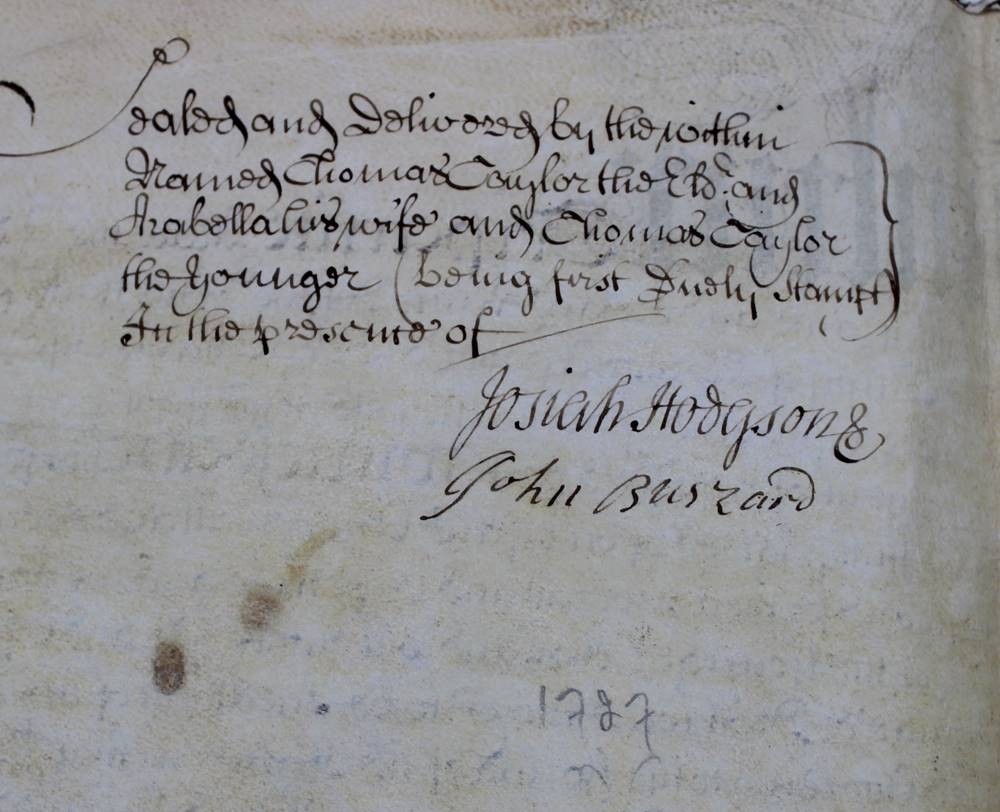 Sealed and Delivered by the within
Named Thomas Taylor the Eld.r and
Arabella his wife and Thomas Taylor
the Younger (being first Duely Stampt)
In the presence of
Josiah Hodgson &
John Buszard
1727